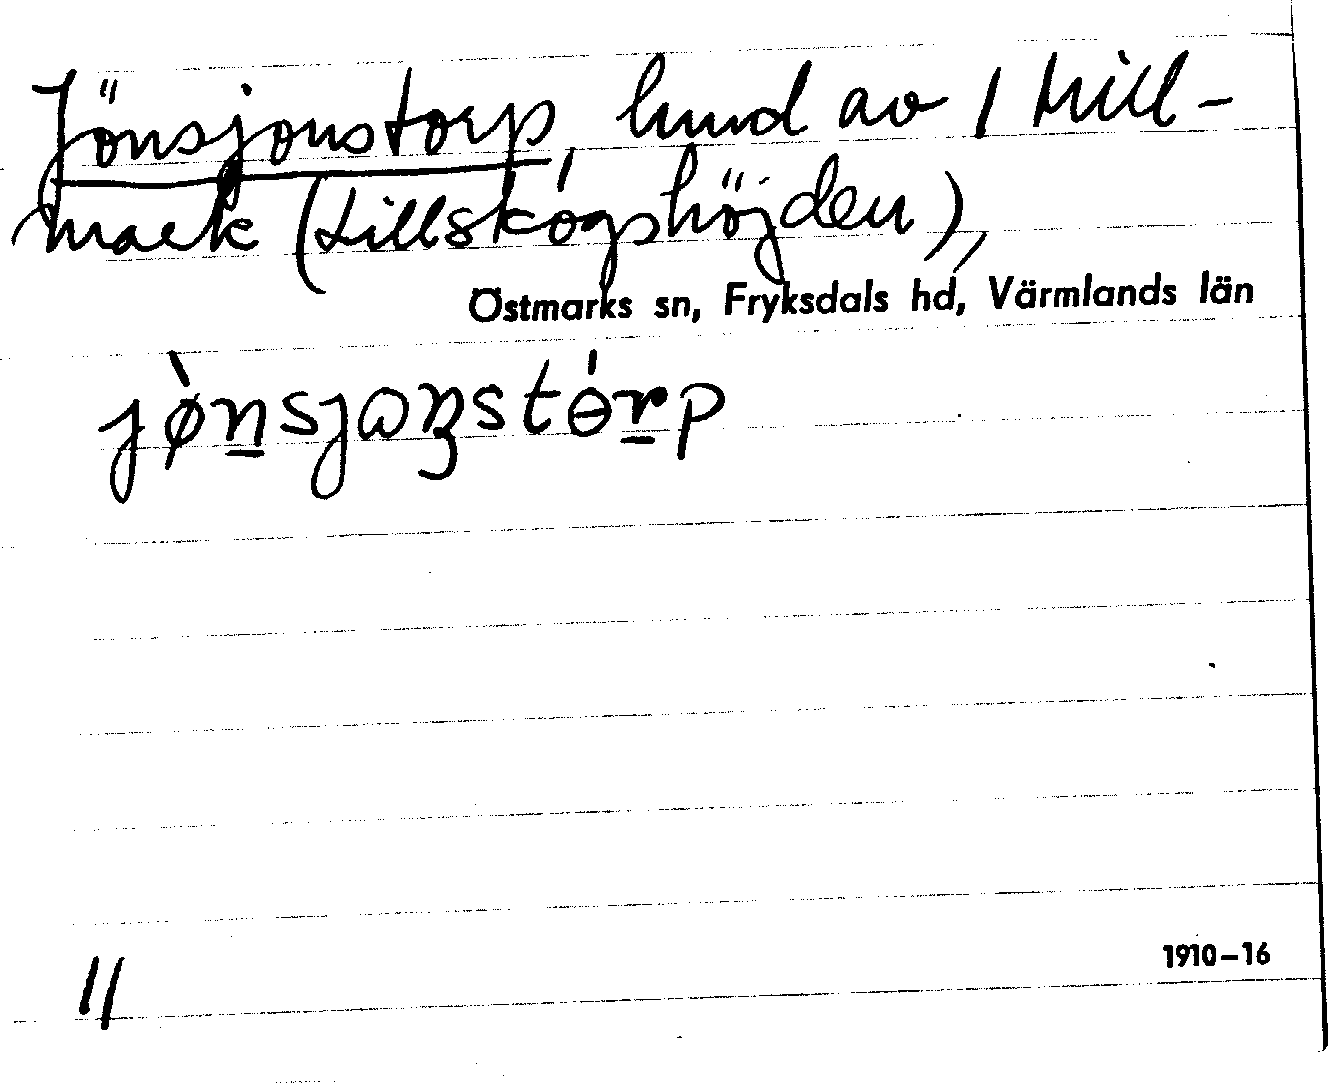 Jönsjonstorp, lund av 1 Mill-
mark (Lillskogshöjden),
Östmarks sn, Fryksdals hd, Värmlands län
jø̀n̠sjaɳstɵ́r̠p
11
1910–16